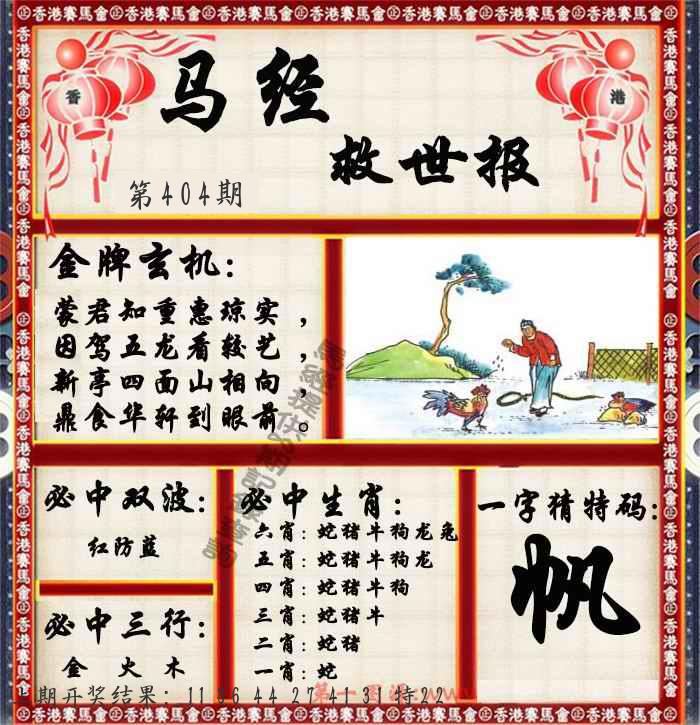 香 港
马经
救世报
第404期
金牌玄机:
蒙君知重惠琼实，
因驾五龙看较艺，
新亭四面山相向，
鼎食华轩到眼前。
必中双波:
红防蓝
必中三行:
金 火 木
必中生肖:
六肖: 蛇猪牛狗龙兔
五肖: 蛇猪牛狗龙
四肖: 蛇猪牛狗
三肖: 蛇猪牛
二肖: 蛇猪
一肖: 蛇
一字猜特码:
帆
期开奖结果: 11 36 44 27 41 31 特22
香港賽馬會